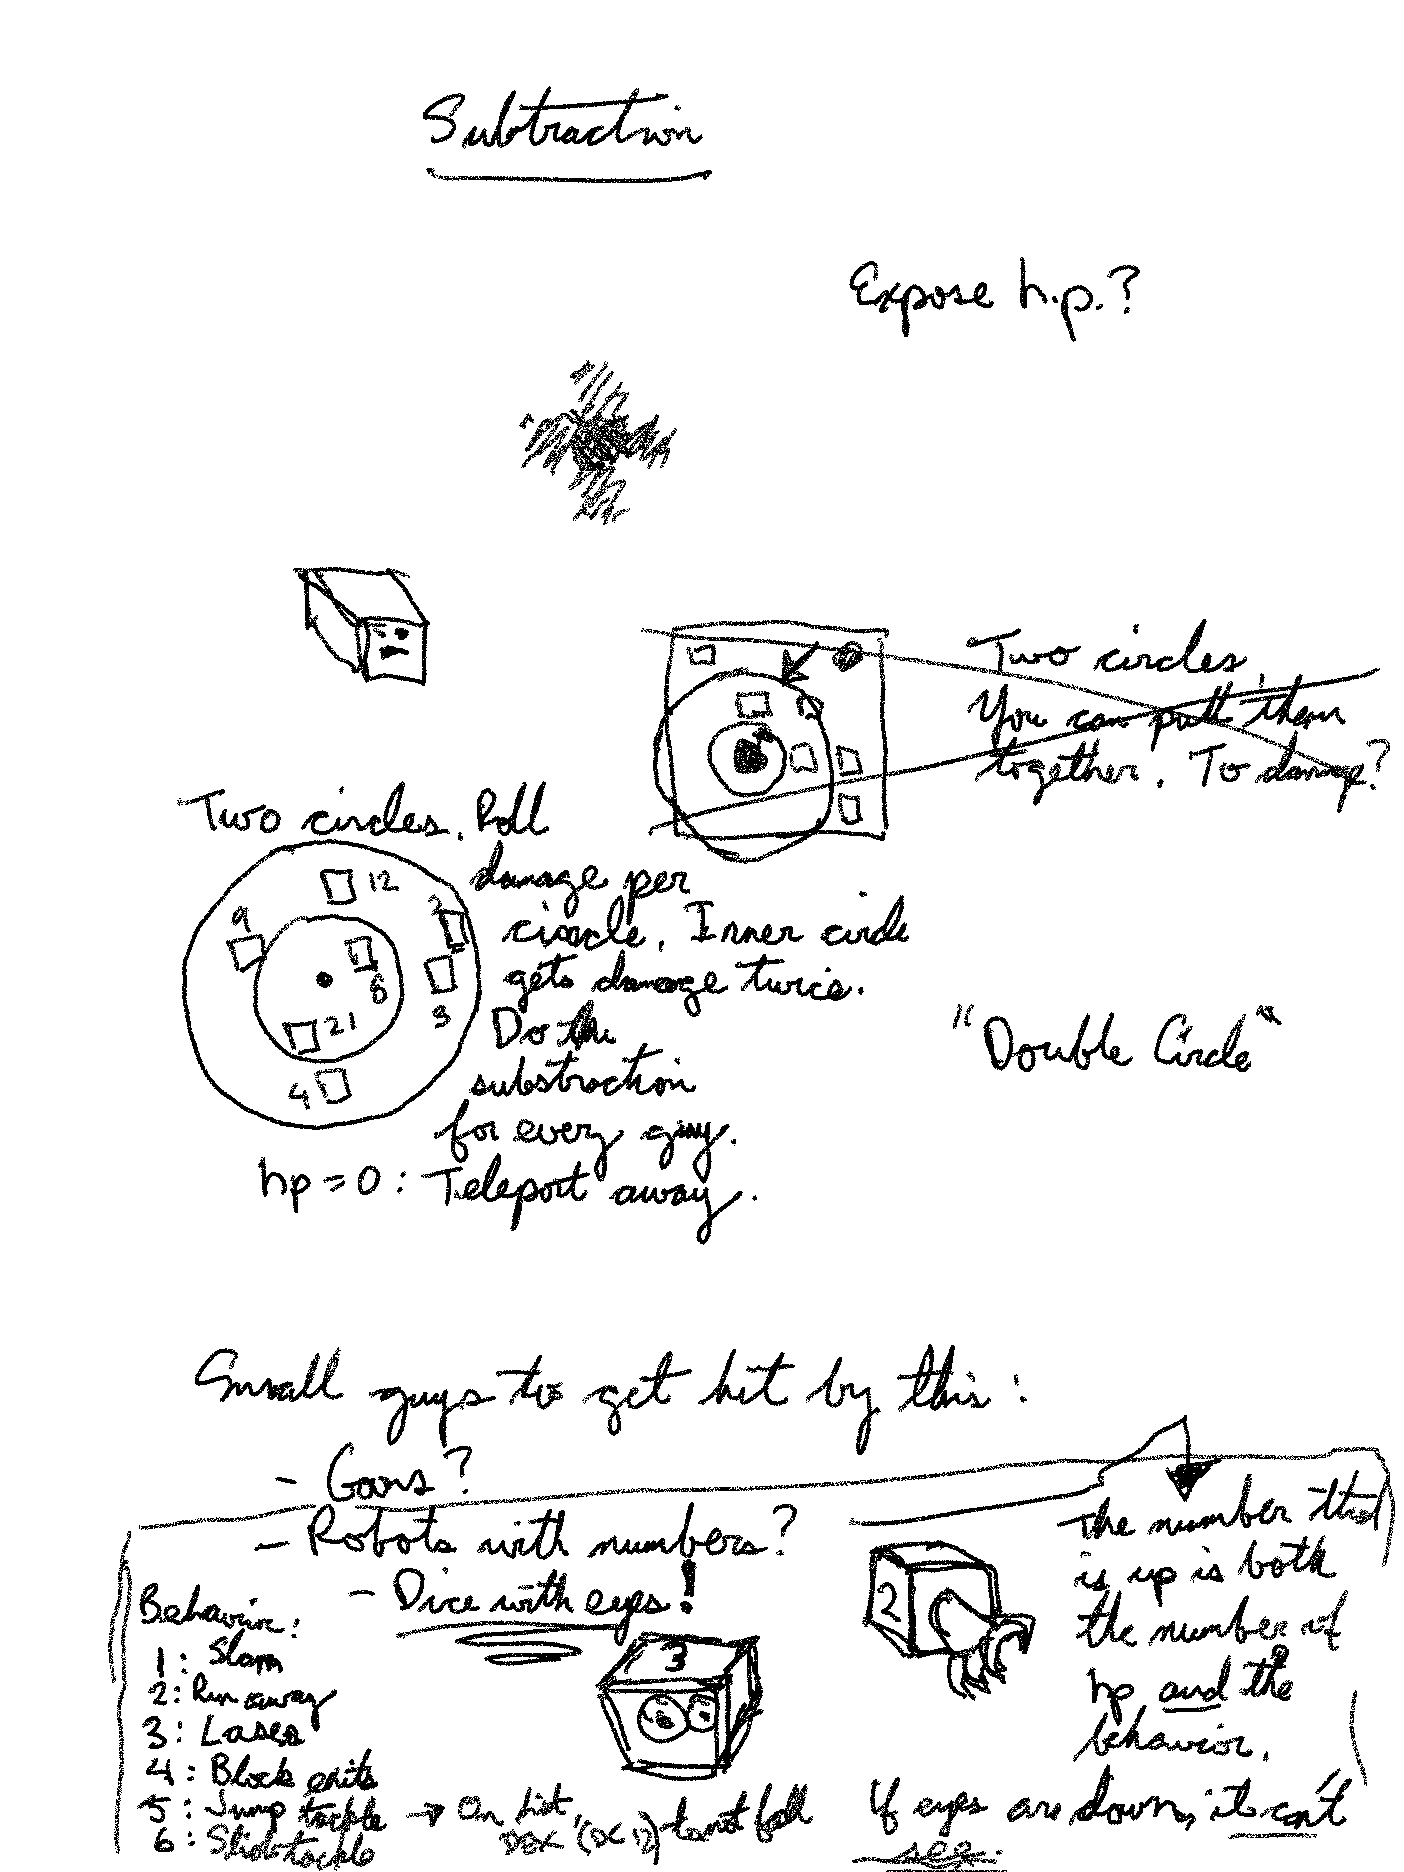 Subtraction
Expose h.p.?
Two circles.
You can pull them
together. To damage?
Two circles. Roll
damage per
circle. Inner circle
gets damage twice.
Do the
substraction
for every guy.
hp = 0 : Teleport away.
12
9
2
8
3
21
4
"Double Circle"
Small guys to get hit by this:
- Goons?
- Robots with numbers?
- Dice with eyes!
Behavior:
1: Slam
2: Run away
3: Laser
4: Block exits
5: Jump tackle → On hit, DEX (DC 12) to not fall
6: Slide tackle
3
2
The number that
is up is both
the number of
hp and the
behavior.
If eyes are down, it can't
see.